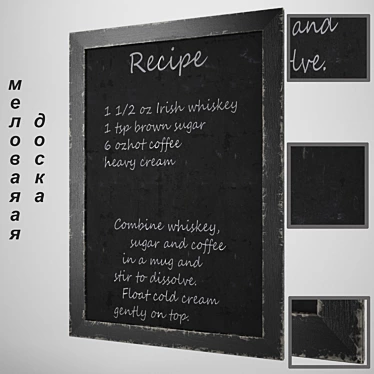 меловаяая
доска
Recipe
1 1/2 oz Irish whiskey
1 tsp brown sugar
6 ozhot coffee
heavy cream
Combine whiskey,
sugar and coffee
in a mug and
stir to dissolve.
Float cold cream
gently on top.
and
lve.